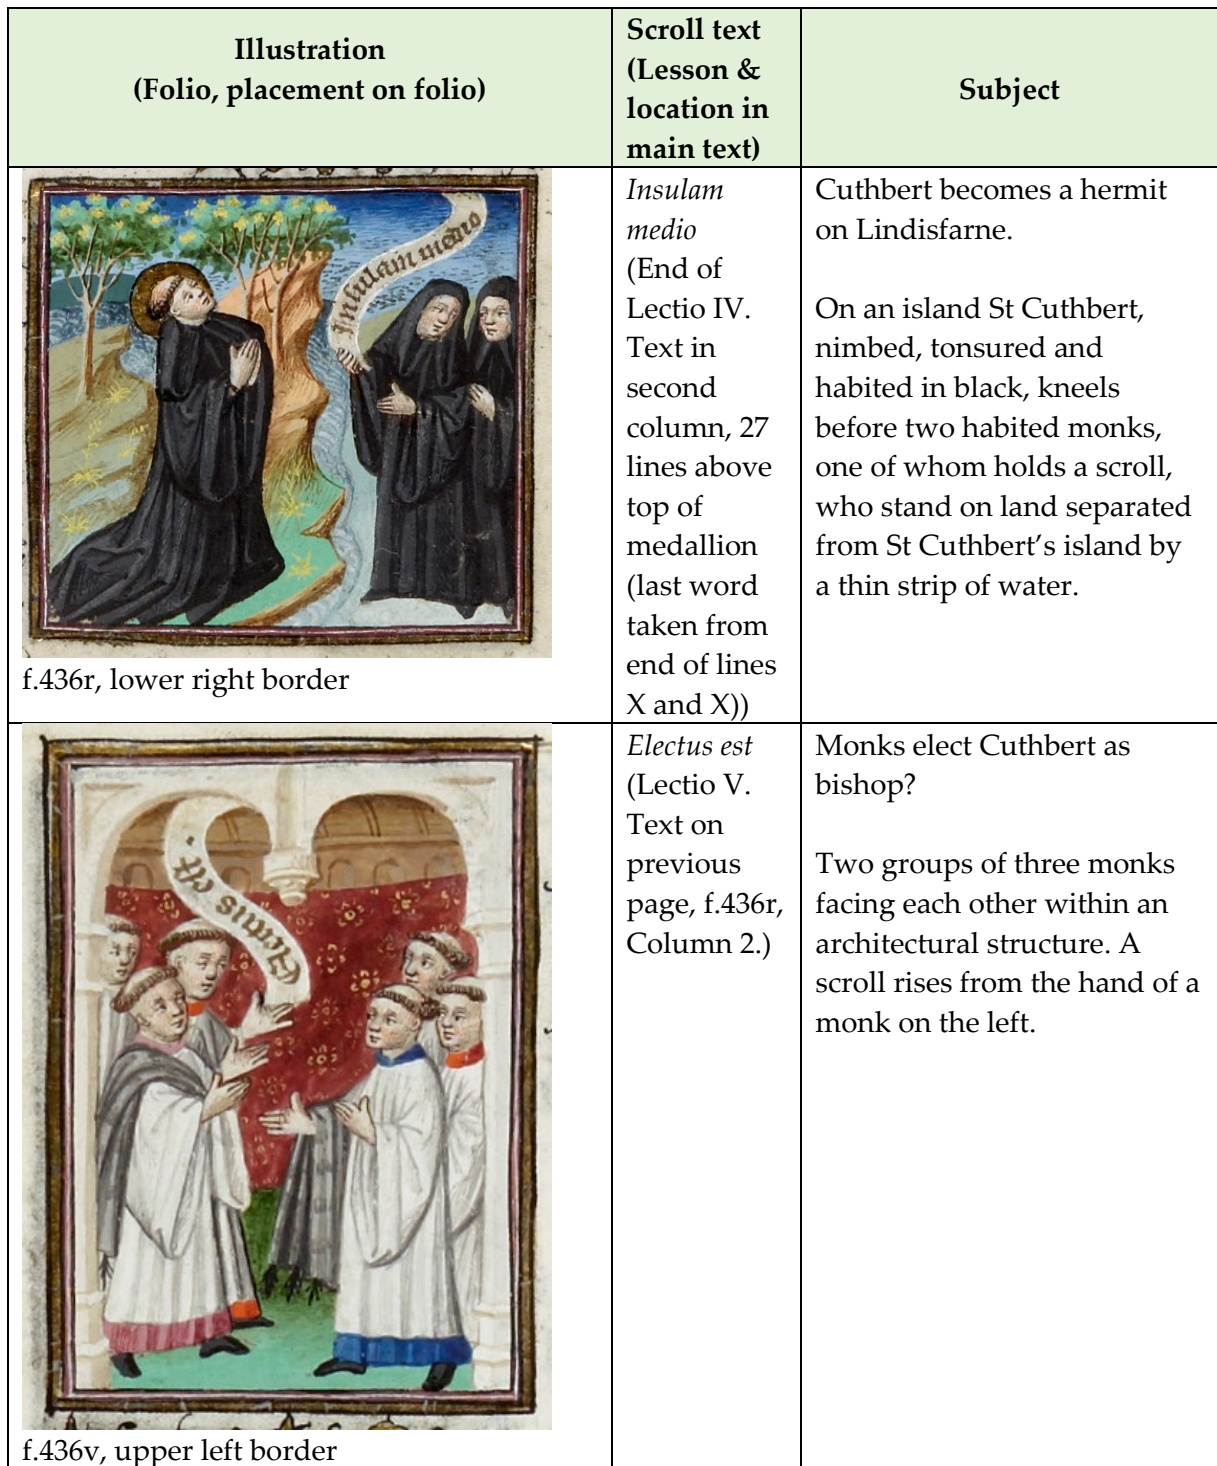 Illustration
(Folio, placement on folio)
Scroll text
(Lesson &
location in
main text)
Subject
Insulam medio
f.436r, lower right border
Insulam
medio
(End of
Lectio IV.
Text in
second
column, 27
lines above
top of
medallion
(last word
taken from
end of lines
X and X))
Cuthbert becomes a hermit
on Lindisfarne.
On an island St Cuthbert,
nimbed, tonsured and
habited in black, kneels
before two habited monks,
one of whom holds a scroll,
who stand on land separated
from St Cuthbert’s island by
a thin strip of water.
Electus est
f.436v, upper left border
Electus est
(Lectio V.
Text on
previous
page, f.436r,
Column 2.)
Monks elect Cuthbert as
bishop?
Two groups of three monks
facing each other within an
architectural structure. A
scroll rises from the hand of a
monk on the left.